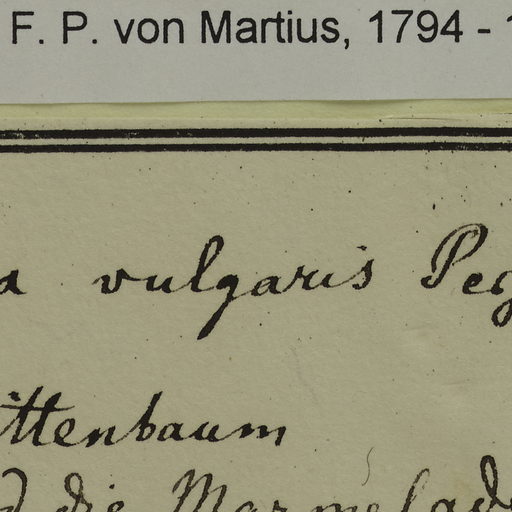 F. P. von Martius, 1794 -
vulgaris
ittenbaum
die Marmelad